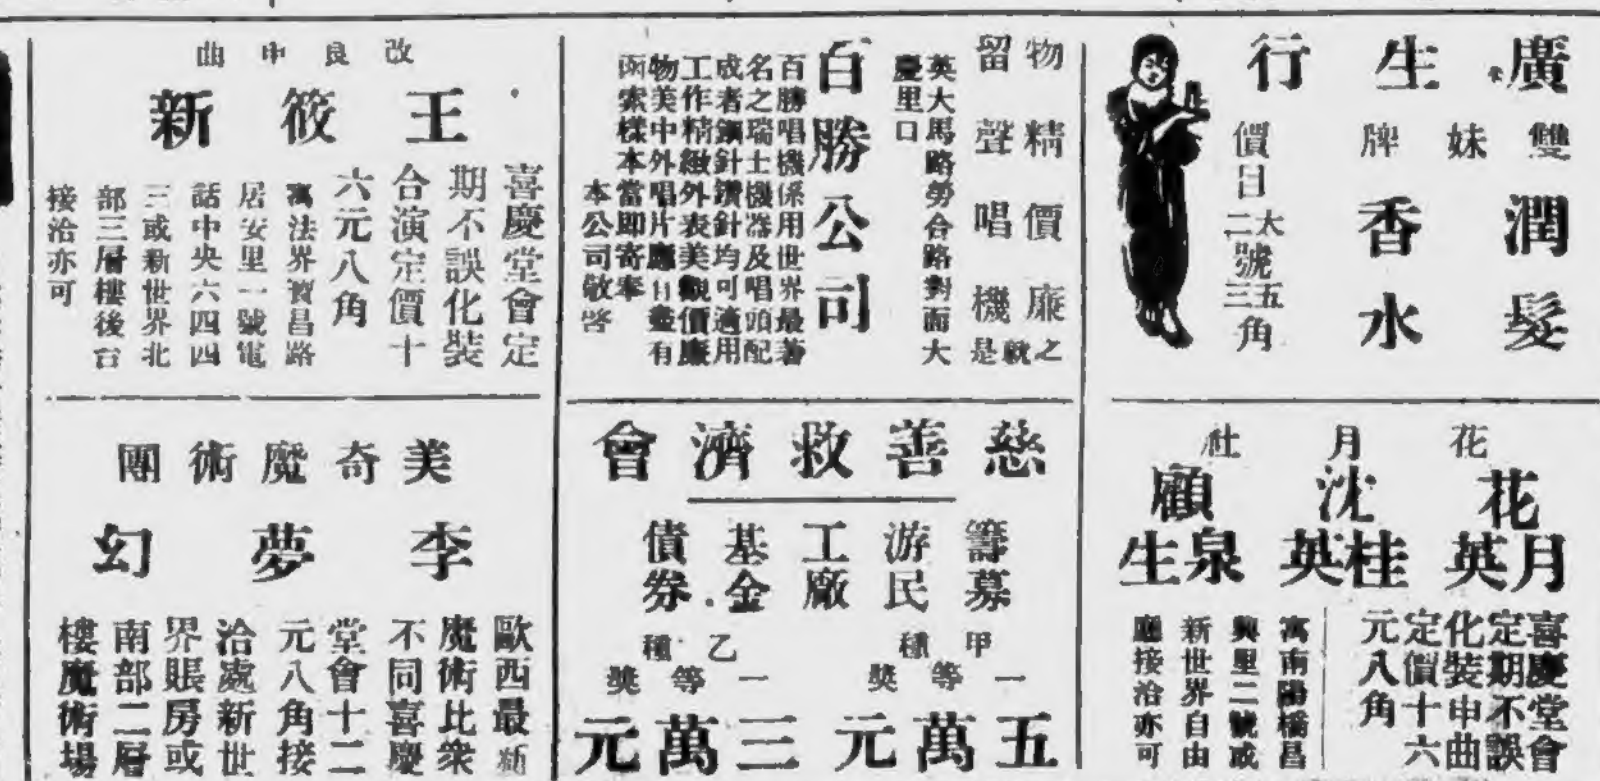 廣生行
雙妹牌
潤髮
香水
價目
大號五角
二號三角
物精價廉之
留聲唱機
就是
英大馬路勞合路對面大
慶里口
百勝公司
百勝唱機係用世界最著
名之瑞士機器及唱頭配
成者鋼針鑽針均可適用
工作精緻外表美觀價廉
物美中外唱片應有盡有
函索樣本當即寄奉
本公司敬啓
改良申曲
王筱新
喜慶堂會定
期不誤化裝
合演定價十
六元八角
寓法界寶昌路
居安里一號電
話中央六四四
三或新世界北
部三層樓後台
接洽亦可
花月社
花月英
沈桂英
顧泉生
喜慶堂會
定期不誤
化裝申曲
定價十六
元八角
寓南陽橋昌
興里二號或
新世界自由
廳接洽亦可
慈善救濟會
籌募游民工廠基金債券
甲種
一等獎
五萬元
乙種
一等獎
三萬元
美奇魔術團
李夢幻
歐西最新
魔術比衆
不同喜慶
堂會十二
元八角接
洽處新世
界賬房或
南部二層
樓魔術場